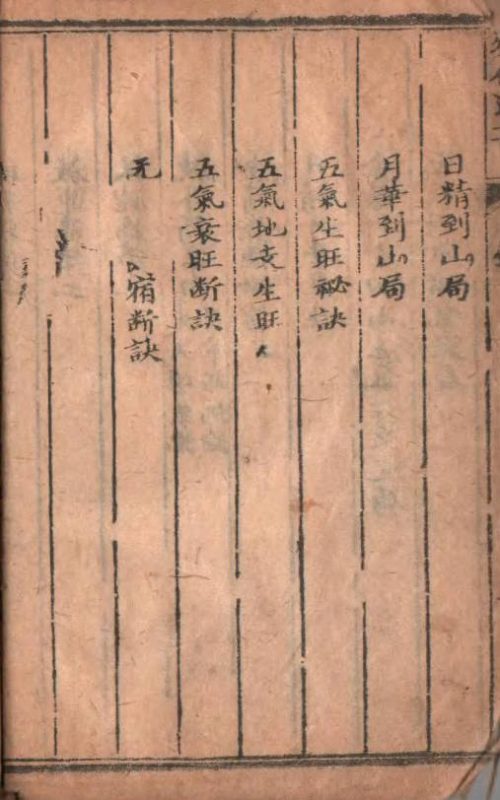 日精到山局
月華到山局
五氣生旺祕訣
五氣地支生旺
五氣衰旺断訣
宿断訣